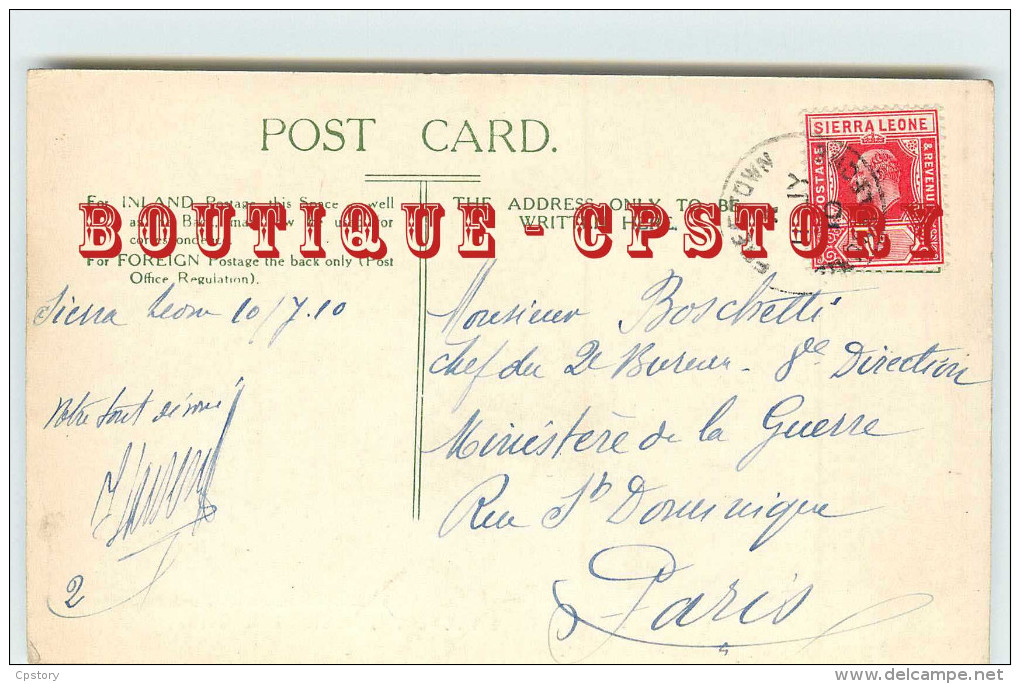 POST CARD.
For INLAND Postage this Space
For FOREIGN Postage the back only (Post
Office Regulation).
THE ADDRESS ONLY TO BE
WRITTEN HERE.
BOUTIQUE - CPSTORY
SIERRA LEONE
POSTAGE
& REVENUE
FREETOWN
Sierra Leone 10/7.10
Votre tout dévoué
2
Monsieur Boschetti
Chef du 2e Bureau - 8e Direction
Ministère de la Guerre
Rue St Dominique
Paris
Cpstory
www.delcampe.net